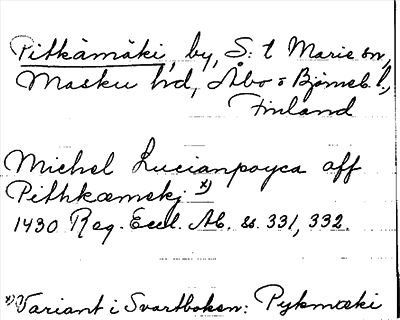 Pitkämäki, by, S:t Marie sn,
Masku hd, Åbo o Björneb. l.,
Finland
Michel Lucianpoyca aff
Pithkæmekj x)
1430 Reg. Eccl. Ab. ss. 331, 332.
x) Variant i Svartboken: Pykmæki